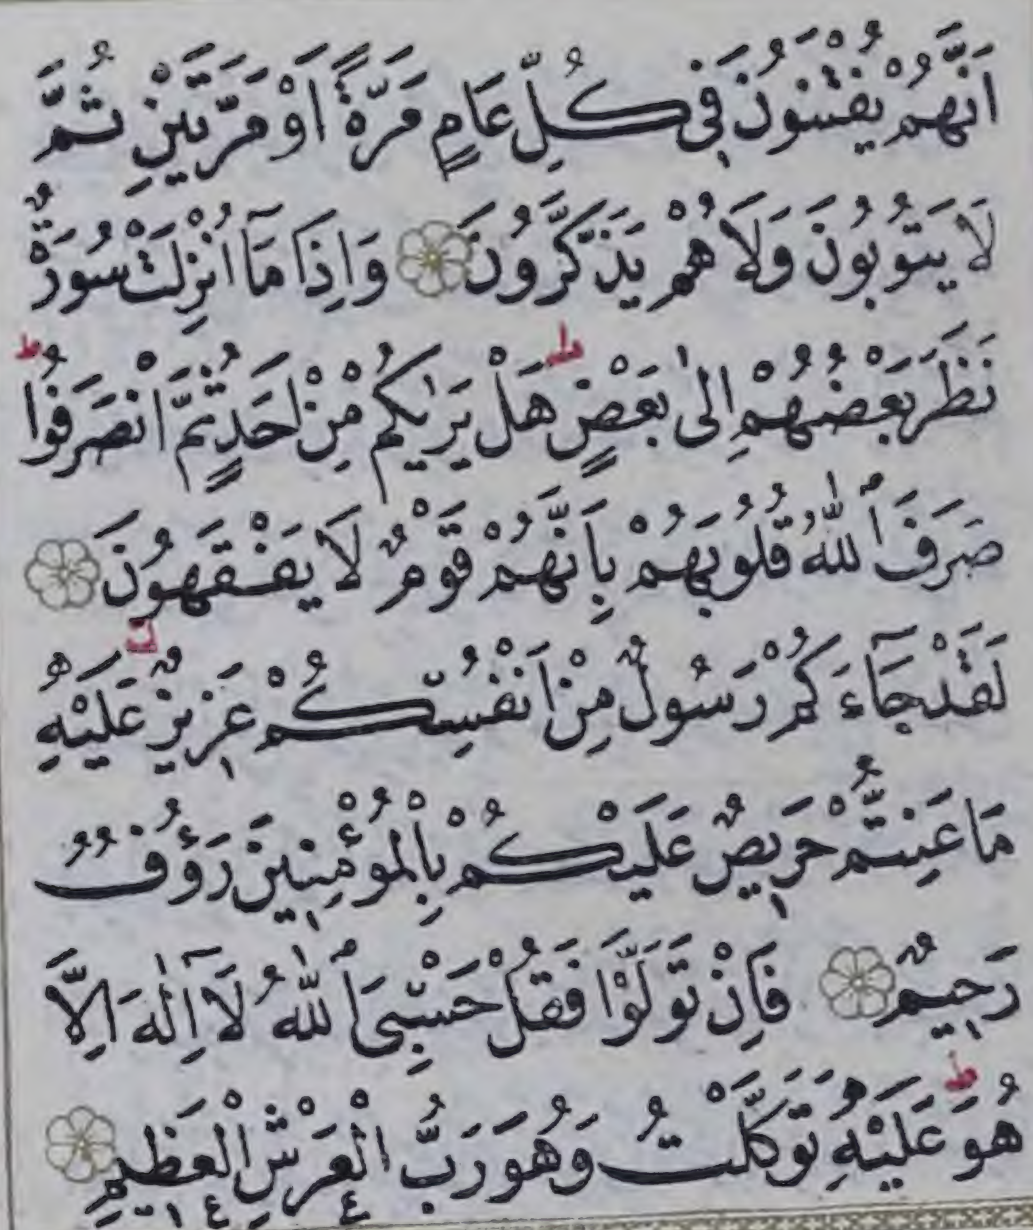 اَنَّهُمْ يُفْتَنُونَ فِى كُلِّ عَامٍ مَرَّةً اَوْ مَرَّتَيْنِ ثُمَّ
لَا يَتُوبُونَ وَلَا هُمْ يَذَّكَّرُونَ وَاِذَا مَٓا اُنْزِلَتْ سُورَةٌ
نَظَرَ بَعْضُهُمْ اِلٰى بَعْضٍ ط هَلْ يَرٰيكُمْ مِنْ اَحَدٍ ثُمَّ انْصَرَفُوا ط
صَرَفَ اللّٰهُ قُلُوبَهُمْ بِاَنَّهُمْ قَوْمٌ لَا يَفْقَهُونَ
لَقَدْ جَٓاءَكُمْ رَسُولٌ مِنْ اَنْفُسِكُمْ عَزِيزٌ عَلَيْهِ
مَا عَنِتُّمْ حَرِيصٌ عَلَيْكُمْ بِالْمُؤْمِنِينَ رَؤُفٌ
رَحِيمٌ فَاِنْ تَوَلَّوْا فَقُلْ حَسْبِىَ اللّٰهُ لَٓا اِلٰهَ اِلَّا
هُوَ ط عَلَيْهِ تَوَكَّلْتُ وَهُوَ رَبُّ الْعَرْشِ الْعَظِيمِ